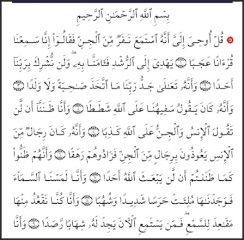 بِسْمِ ٱللَّهِ ٱلرَّحْمَـٰنِ ٱلرَّحِيمِ
قُلْ أُوحِىَ إِلَىَّ أَنَّهُ ٱسْتَمَعَ نَفَرٌ مِّنَ ٱلْجِنِّ فَقَالُوٓا۟ إِنَّا سَمِعْنَا
قُرْءَانًا عَجَبًا ۝ يَهْدِىٓ إِلَى ٱلرُّشْدِ فَـَٔامَنَّا بِهِۦ ۖ وَلَن نُّشْرِكَ بِرَبِّنَآ
أَحَدًا ۝ وَأَنَّهُۥ تَعَـٰلَىٰ جَدُّ رَبِّنَا مَا ٱتَّخَذَ صَـٰحِبَةً وَلَا وَلَدًا ۝
وَأَنَّهُۥ كَانَ يَقُولُ سَفِيهُنَا عَلَى ٱللَّهِ شَطَطًا ۝ وَأَنَّا ظَنَنَّآ أَن لَّن
تَقُولَ ٱلْإِنسُ وَٱلْجِنُّ عَلَى ٱللَّهِ كَذِبًا ۝ وَأَنَّهُۥ كَانَ رِجَالٌ مِّنَ
ٱلْإِنسِ يَعُوذُونَ بِرِجَالٍ مِّنَ ٱلْجِنِّ فَزَادُوهُمْ رَهَقًا ۝ وَأَنَّهُمْ ظَنُّوا۟
كَمَا ظَنَنتُمْ أَن لَّن يَبْعَثَ ٱللَّهُ أَحَدًا ۝ وَأَنَّا لَمَسْنَا ٱلسَّمَآءَ
فَوَجَدْنَـٰهَا مُلِئَتْ حَرَسًا شَدِيدًا وَشُهُبًا ۝ وَأَنَّا كُنَّا نَقْعُدُ مِنْهَا
مَقَـٰعِدَ لِلسَّمْعِ ۖ فَمَن يَسْتَمِعِ ٱلْـَٔانَ يَجِدْ لَهُۥ شِهَابًا رَّصَدًا ۝ وَأَنَّا